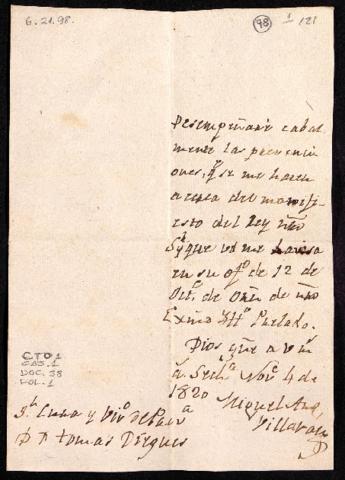 6.21.98.
98
1/121
Desempeñaré cabal
mente las prevenci
ones, q.e se me hacen
acerca del manifi
esto del Rey ñro
S.r que vd me
en su of.o de 12 de
Oct.e de orn de ñro
Exmo Prelado.
Dios gue a vm
a.s Nov.e 4 de
1820
Miguel Ang.l
Villaran
S.r Cura y Vic.o de
D D tomas Dieguez
CTO 1
CAJ. 1
DOC. 38
FOL. 1